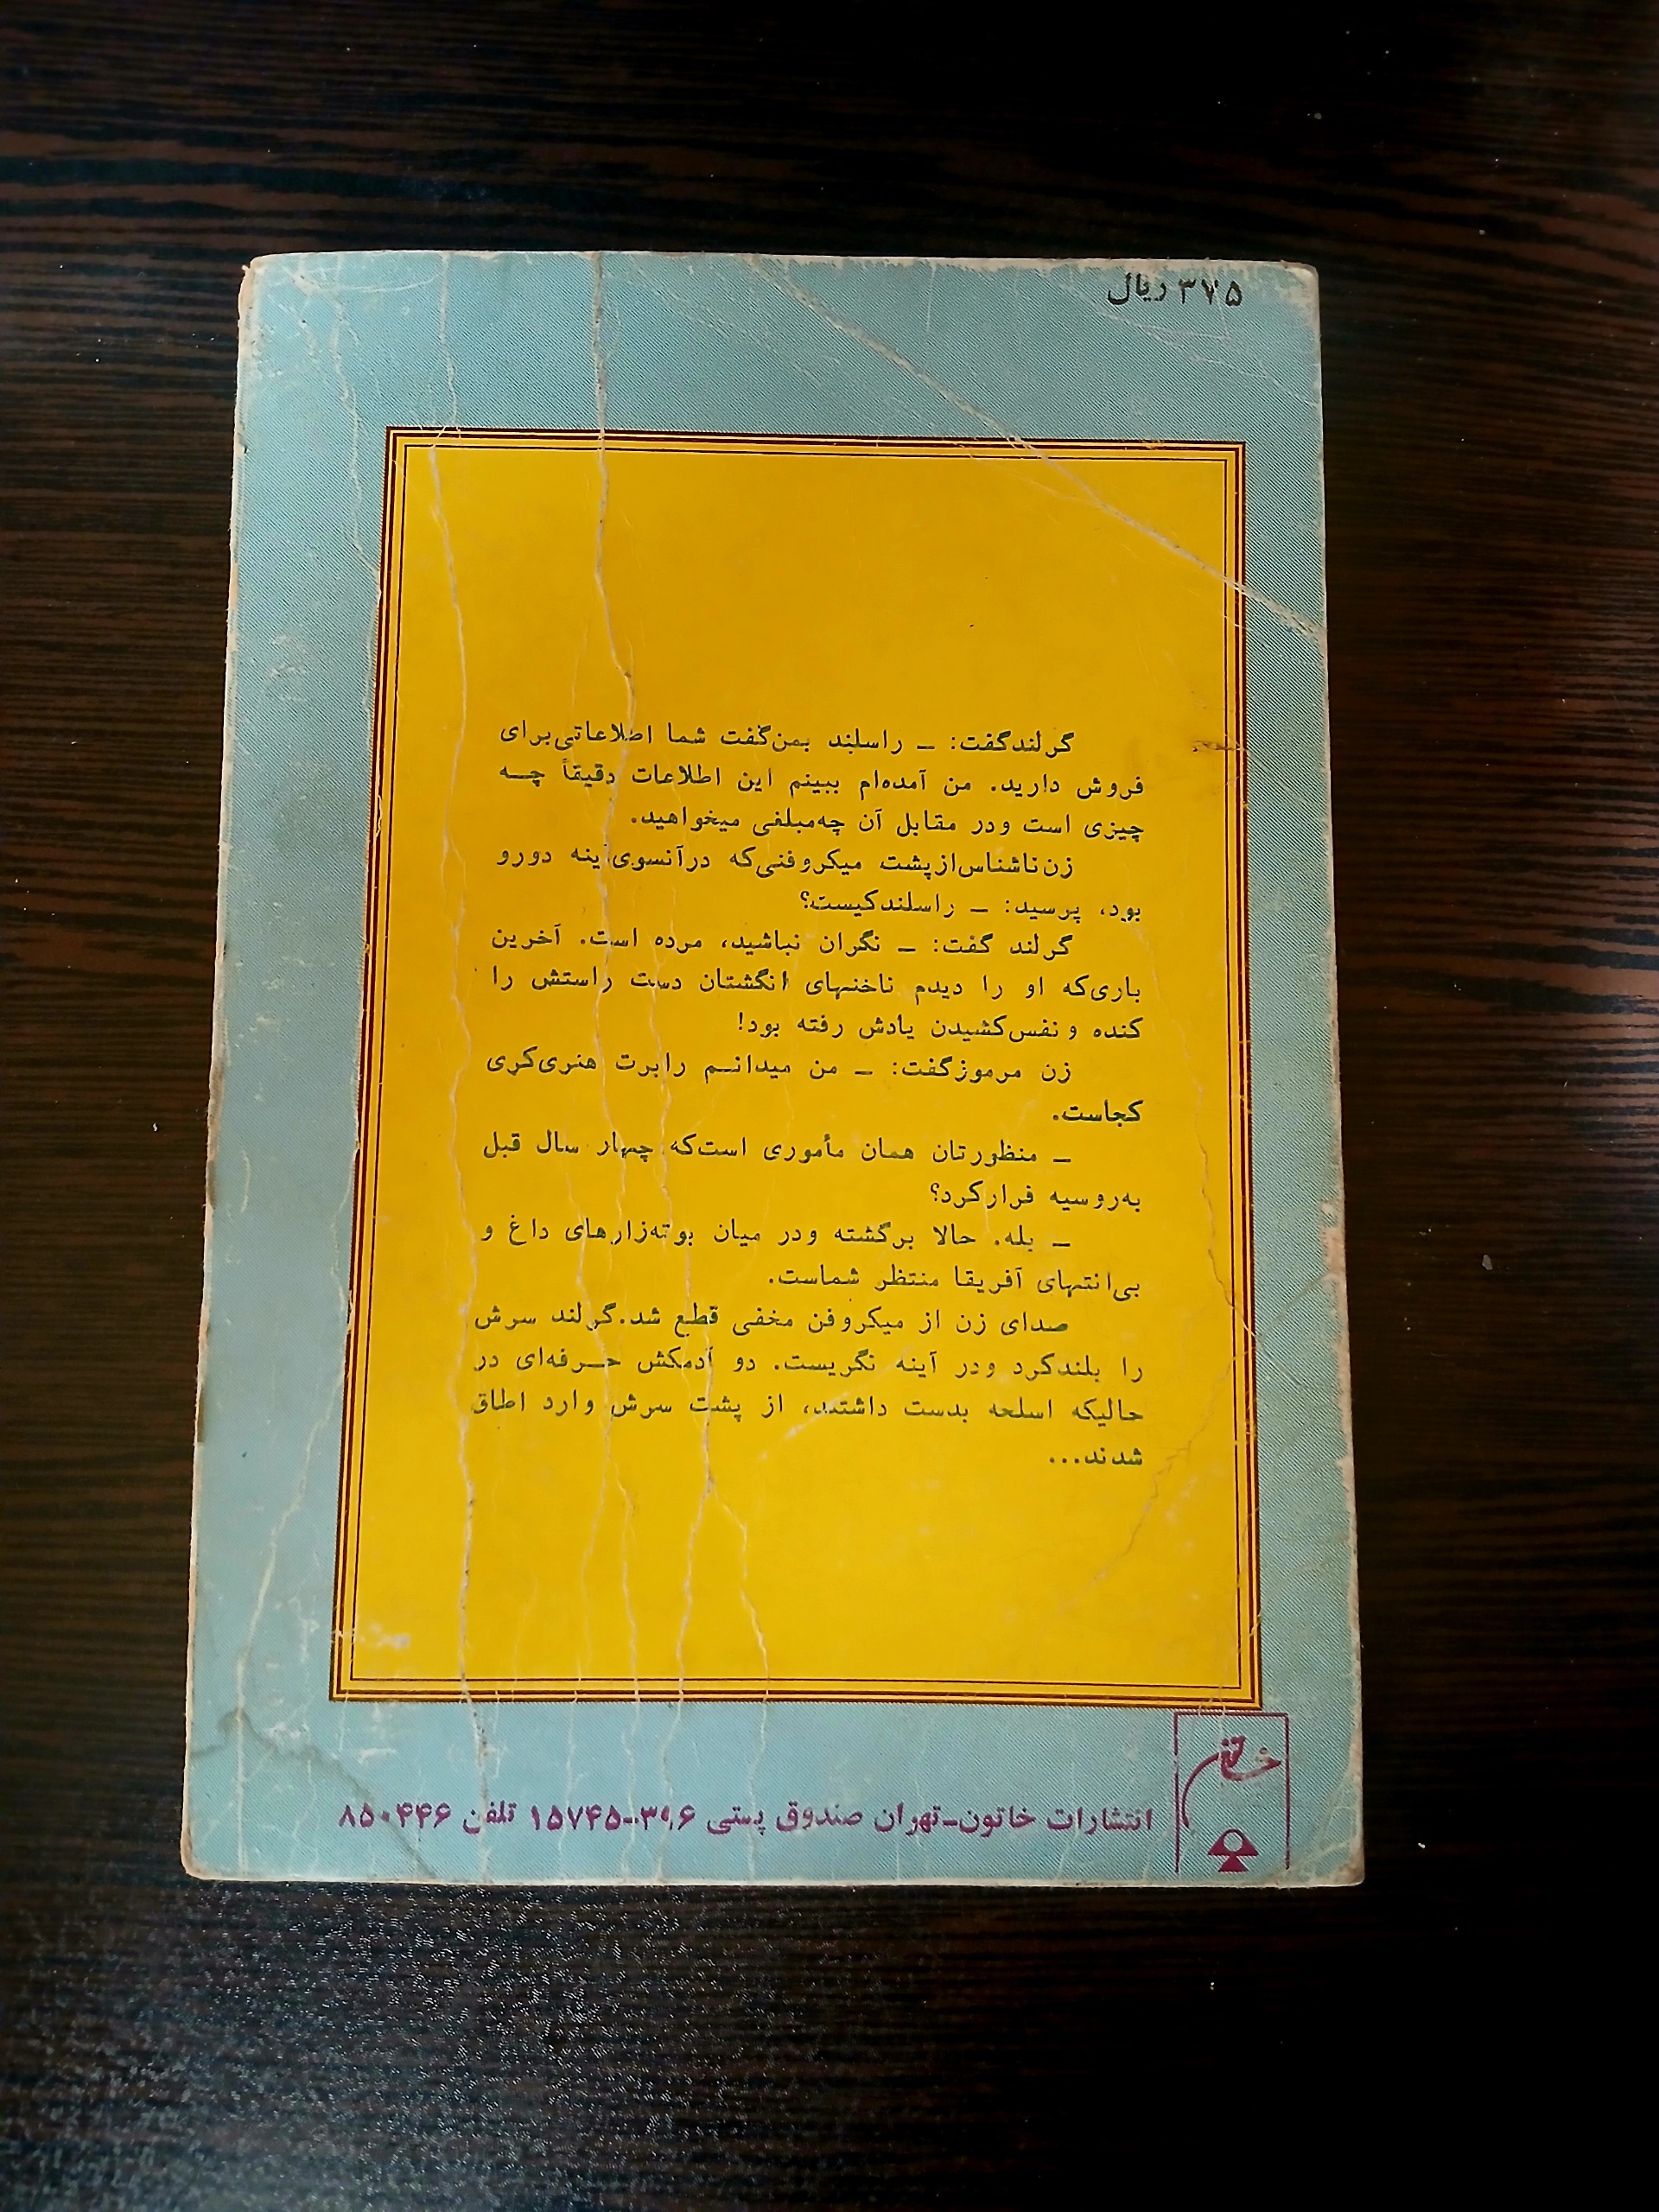 ۳۷۵ ریال
گرلندگفت: ــ راسلند بمن‌گفت شما اطلاعاتی‌برای
فروش دارید. من آمده‌ام ببینم این اطلاعات دقیقاً چــه
چیزی است ودر مقابل آن چه‌مبلغی میخواهید.
زن‌ناشناس‌ازپشت میکروفنی‌که درآنسوی‌آینه دورو
بود، پرسید: ــ راسلندکیست؟
گرلند گفت: ــ نگران نباشید، مرده است. آخرین
باری‌که او را دیدم ناخنهای انگشتان دست راستش را
کنده ونفس‌کشیدن یادش رفته بود!
زن مرموزگفت: ــ من میدانــم رابرت هنری‌کری
کجاست.
ــ منظورتان همان مأموری است‌که چهار سال قبل
به‌روسیه فرارکرد؟
ــ بله. حالا برگشته ودر میان بوته‌زارهای داغ و
بی‌انتهای آفریقا منتظر شماست.
صدای زن از میکروفن مخفی قطع شد.گرلند سرش
را بلندکرد ودر آینه نگریست. دو آدمکش حــرفه‌ای در
حالیکه اسلحه بدست داشتند، از پشت سرش وارد اطاق
شدند...
خاتون
انتشارات خاتون-تهران صندوق پستی ۳۹۶-۱۵۷۴۵ تلفن ۸۵۰۴۴۶